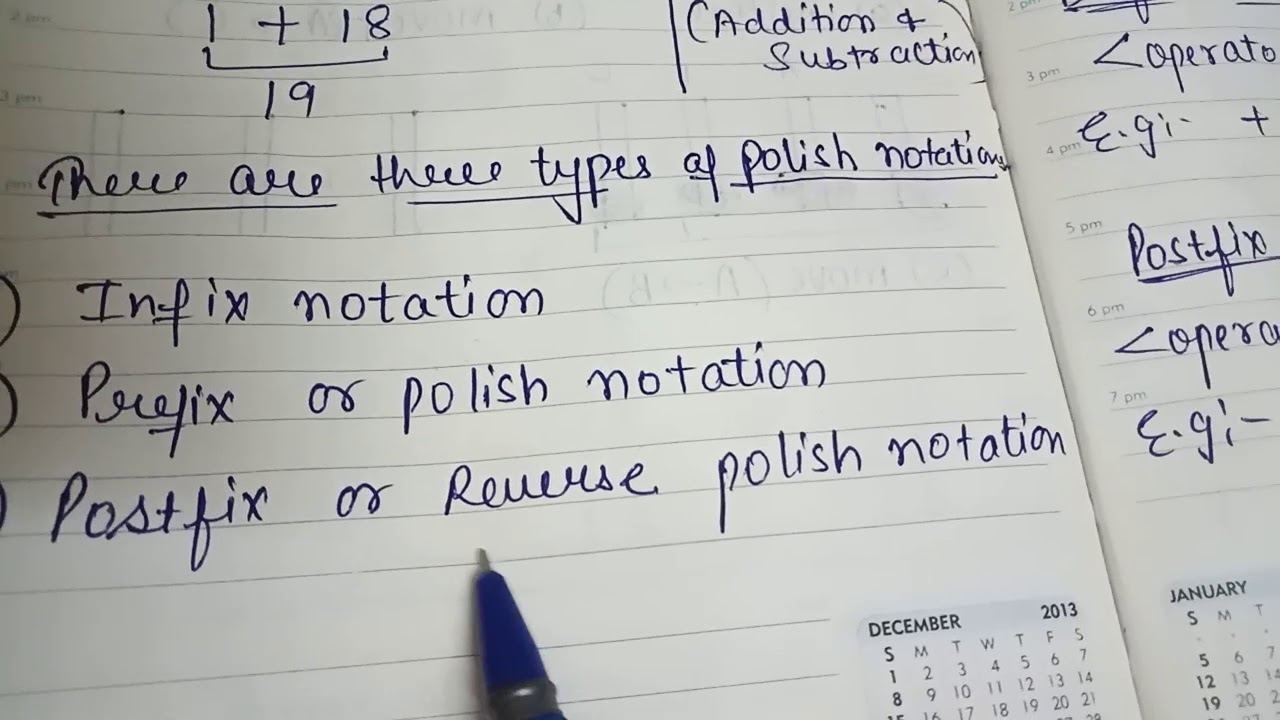 1 + 18
19
(Addition &
Subtraction
There are three types of polish notation
Infix notation
Prefix or polish notation
Postfix or Reverse polish notation
3 pm
2 pm
<operato
3 pm
E.g:- +
4 pm
5 pm
Postfix
6 pm
<opera
7 pm
E.g:-
DECEMBER 2013
S M T W T F S
1 2 3 4 5 6 7
8 9 10 11 12 13 14
15 16 17 18 19 20 21
JANUARY
S M T
5 6 7
12 13 14
19 20 2